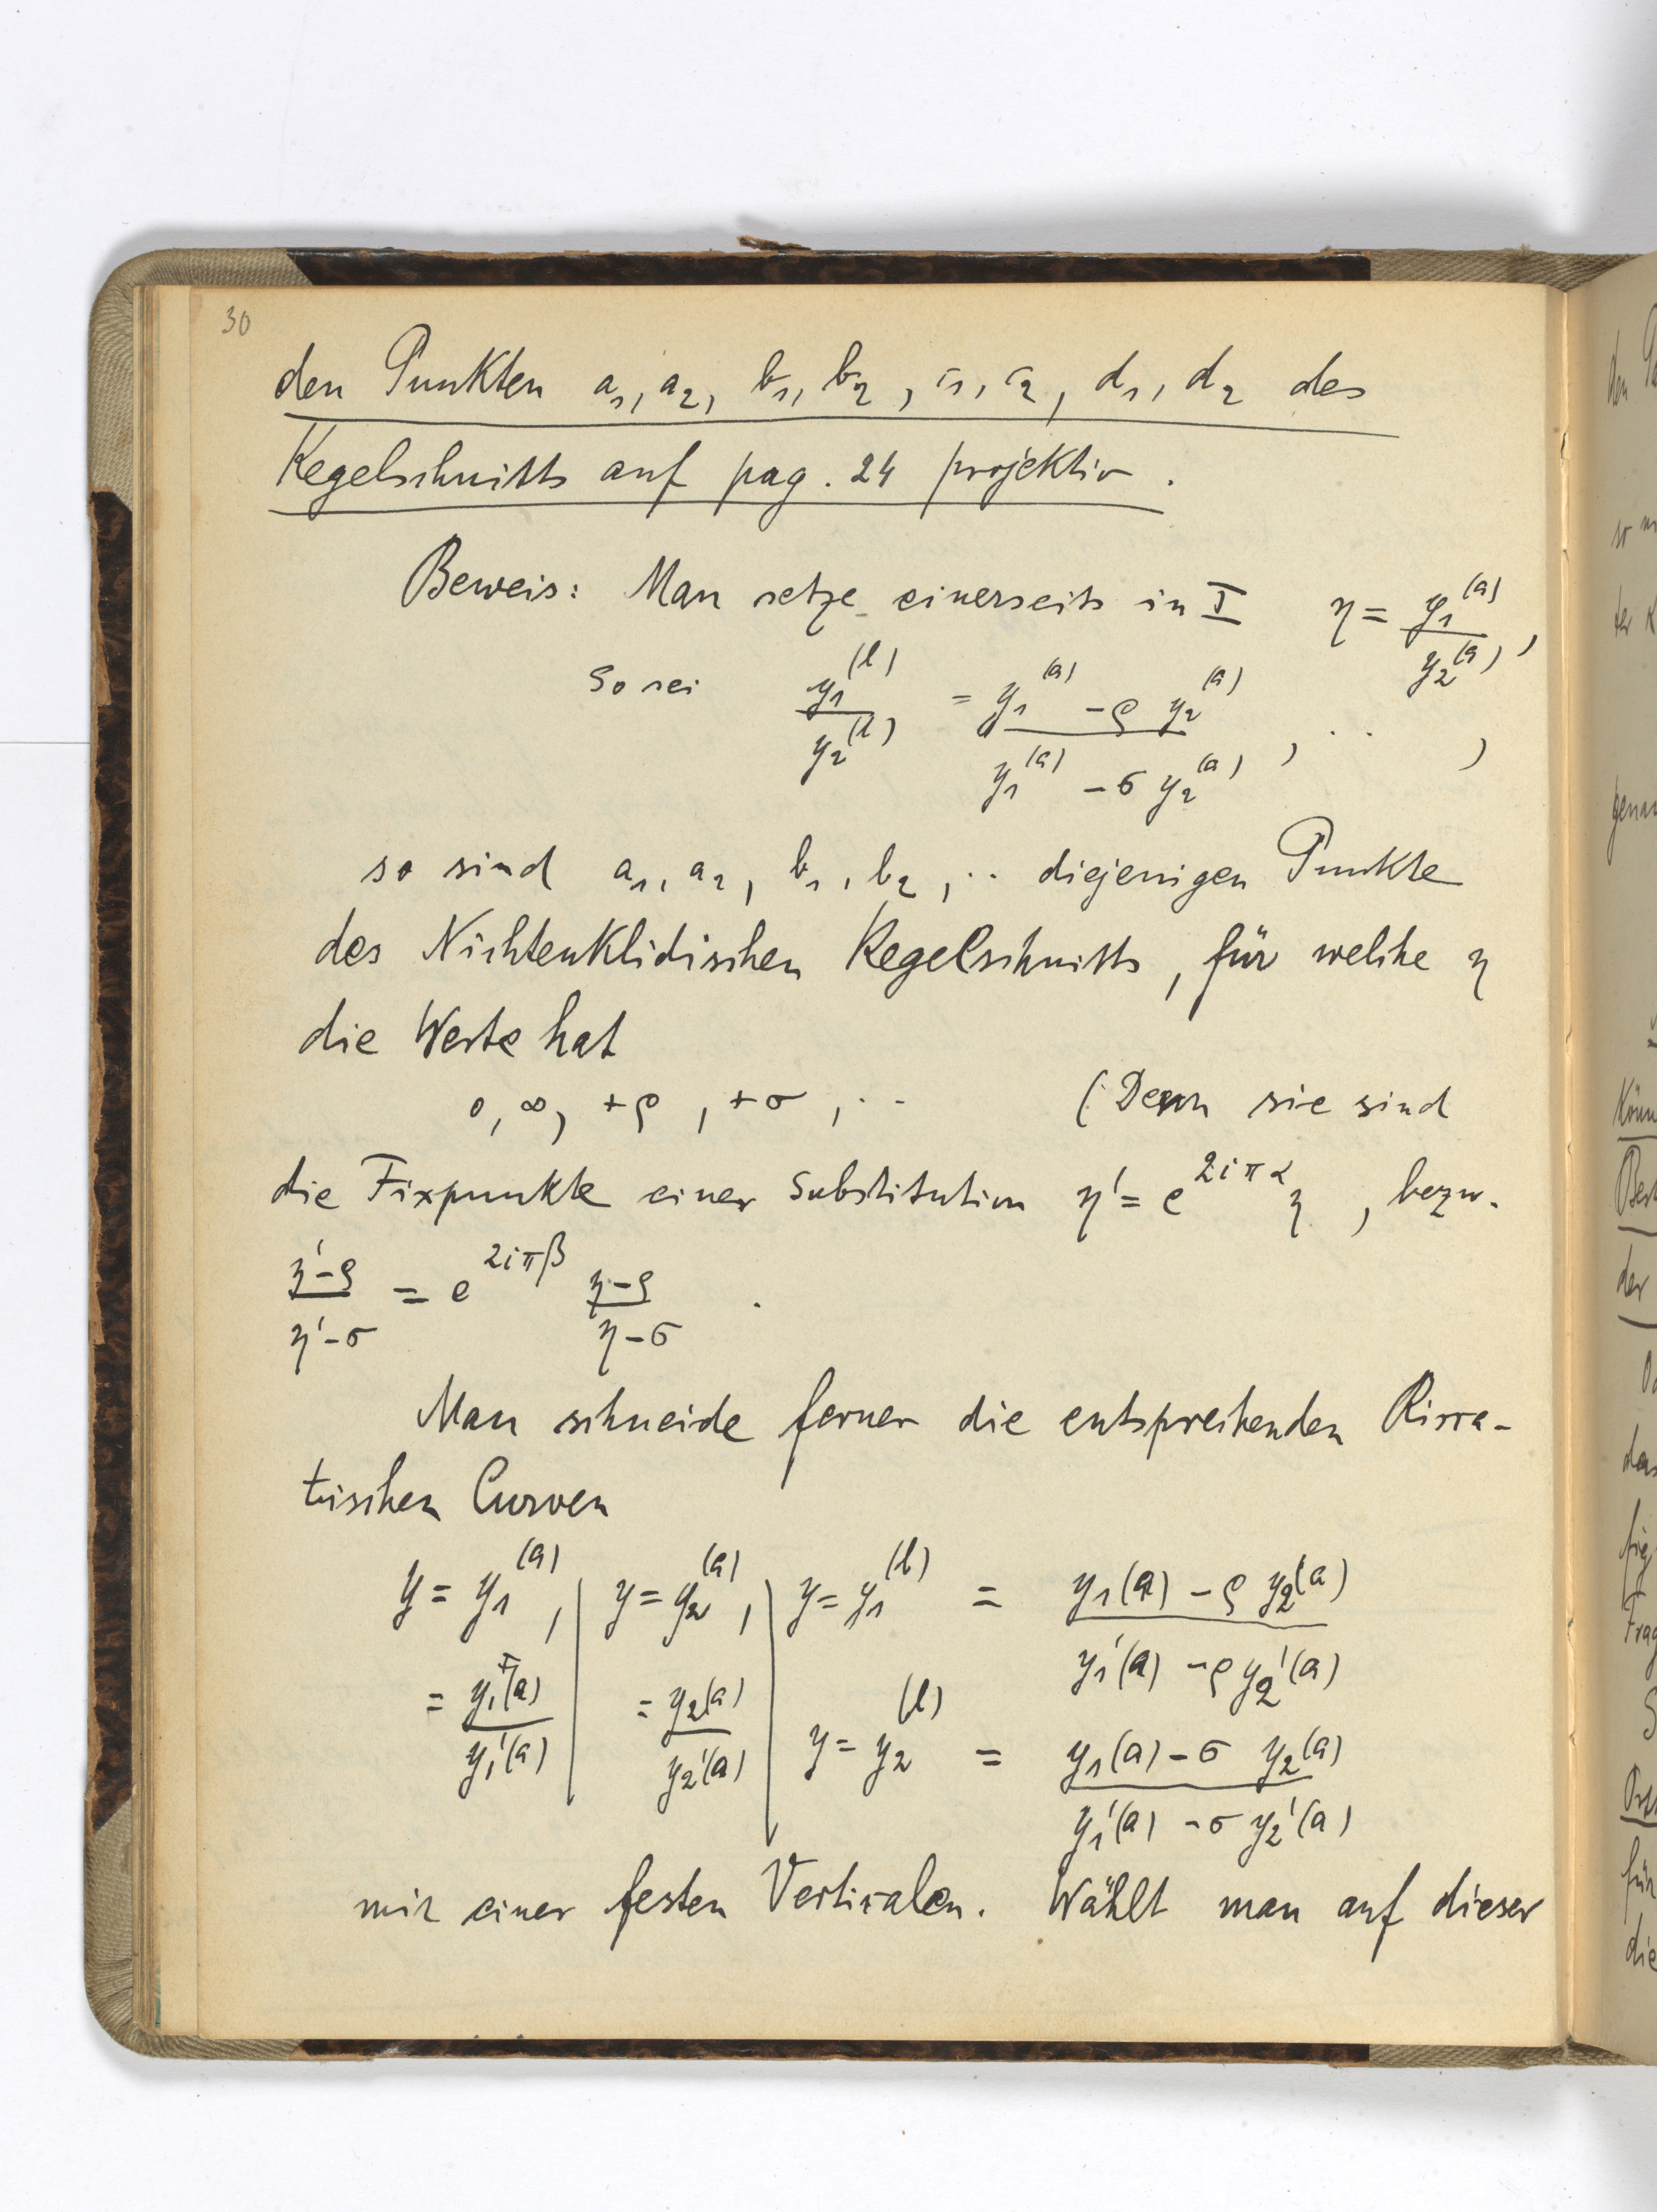 30
den Punkten a₁, a₂, b₁, b₂, c₁, c₂, d₁, d₂ des
Kegelschnitts auf pag. 24 projektiv.
Beweis: Man setze einerseits in I η = y₁⁽ᵃ⁾ / y₂⁽ᵃ⁾,
So sei y₁⁽ᵇ⁾ / y₂⁽ᵇ⁾ = y₁⁽ᵃ⁾ - ρ y₂⁽ᵃ⁾ / y₁⁽ᵃ⁾ - σ y₂⁽ᵃ⁾, .. ,
so sind a₁, a₂, b₁, b₂, .. diejenigen Punkte
des Nichteuklidischen Kegelschnitts, für welche η
die Werte hat
0, ∞, +ρ, +σ, .. (Denn sie sind
die Fixpunkte einer Substitution η' = e^{2iπα} η, bezw.
η'-ρ / η'-σ = e^{2iπβ} η-ρ / η-σ .
Man schneide ferner die entsprechenden Ricca-
tischen Curven
y = y₁⁽ᵃ⁾, | y = y₂⁽ᵃ⁾, | y = y₁⁽ᵇ⁾ = y₁(a) - ρ y₂(a) / y₁'(a) - ρ y₂'(a)
= y₁(a) / y₁'(a) | = y₂(a) / y₂'(a) | y = y₂⁽ᵇ⁾ = y₁(a) - σ y₂(a) / y₁'(a) - σ y₂'(a)
mit einer festen Vertikalen. Wählt man auf dieser